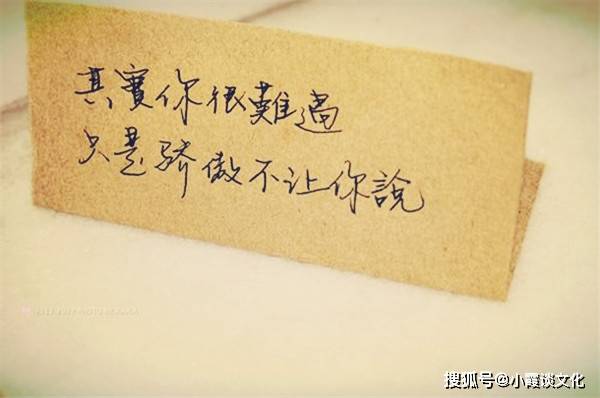 其實你很難過
只是骄傲不让你說
搜狐号@小霞谈文化